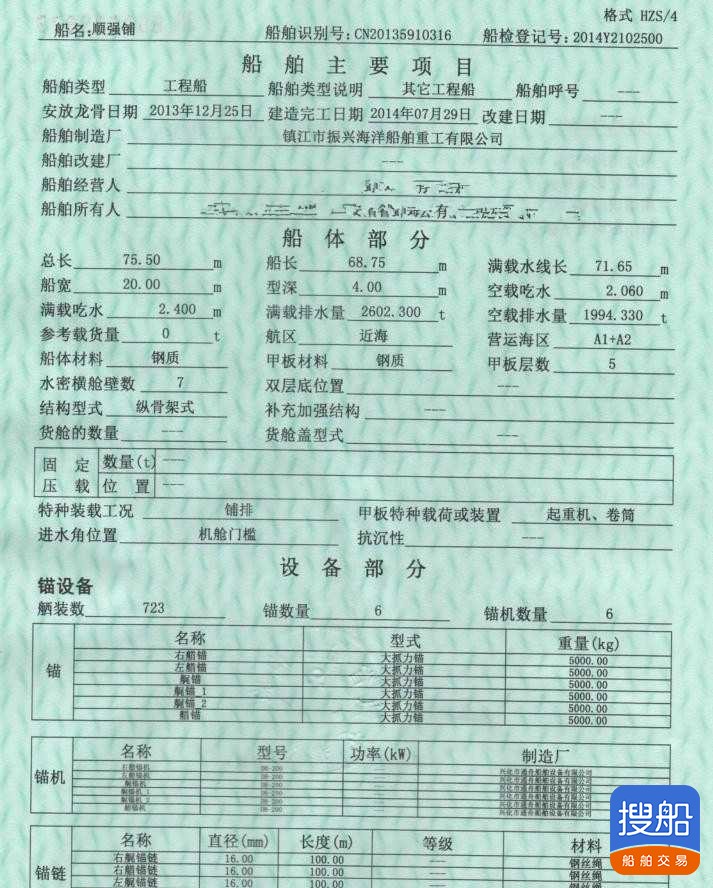 格式 HZS/4
船名:顺强铺 船舶识别号:CN20135910316 船检登记号:2014Y2102500
船舶主要项目
船舶类型 工程船 船舶类型说明 其它工程船 船舶呼号 ---
安放龙骨日期 2013年12月25日 建造完工日期 2014年07月29日 改建日期 ---
船舶制造厂 镇江市振兴海洋船舶重工有限公司
船舶改建厂 ---
船舶经营人
船舶所有人
船体部分
总长 75.50 m 船长 68.75 m 满载水线长 71.65 m
船宽 20.00 m 型深 4.00 m 空载吃水 2.060 m
满载吃水 2.400 m 满载排水量 2602.300 t 空载排水量 1994.330 t
参考载货量 0 t 航区 近海 营运海区 A1+A2
船体材料 钢质 甲板材料 钢质 甲板层数 5
水密横舱壁数 7 双层底位置 ---
结构型式 纵骨架式 补充加强结构 ---
货舱的数量 --- 货舱盖型式 ---
固定压载 数量(t) ---
位置 ---
特种装载工况 铺排 甲板特种载荷或装置 起重机、卷筒
进水角位置 机舱门槛 抗沉性 ---
设备部分
锚设备
舾装数 723 锚数量 6 锚机数量 6
锚 名称 型式 重量(kg)
右船锚 大抓力锚 5000.00
左船锚 大抓力锚 5000.00
艉锚 大抓力锚 5000.00
艉锚_1 大抓力锚 5000.00
艉锚_2 大抓力锚 5000.00
船锚 大抓力锚 5000.00
锚机 名称 型号 功率(kW) 制造厂
兴化市通舟船舶设备有限公司
兴化市通舟船舶设备有限公司
兴化市通舟船舶设备有限公司
兴化市通舟船舶设备有限公司
兴化市通舟船舶设备有限公司
兴化市通舟船舶设备有限公司
锚链 名称 直径(mm) 长度(m) 等级 材料
右艉锚链 16.00 100.00 --- 钢丝绳
右船锚链 16.00 100.00 --- 钢丝绳
左艉锚链 16.00 100.00 --- 钢丝绳
搜船
船舶交易